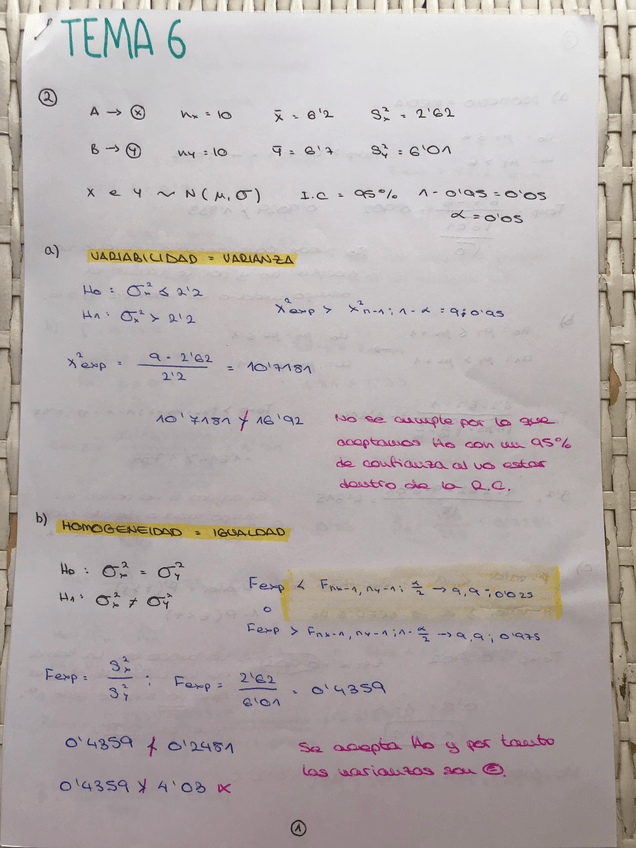 TEMA 6
②
A → Ⓧ nx = 10 x̄ = 6'2 S²x = 2'62
B → Ⓨ ny = 10 ȳ = 6'7 S²y = 6'01
X e Y ~ N(μ,σ) I.C = 95% 1-0'95 = 0'05
α = 0'05
a) VARIABILIDAD = VARIANZA
H0 : σ²x ≤ 2'2
H1 : σ²x > 2'2
X²exp > X²n-1 ; 1-α = 9 ; 0'95
X²exp = 9 · 2'62 / 2'2 = 10'7181
10'7181 ≯ 16'92
No se cumple por lo que
aceptamos H0 con un 95%
de confianza al no estar
dentro de la R.C.
b) HOMOGENEIDAD = IGUALDAD
H0 : σ²x = σ²y
H1 : σ²x ≠ σ²y
Fexp < Fnx-1, ny-1 ; α/2 → 9,9 ; 0'025
o
Fexp > Fnx-1, ny-1 ; 1-α/2 → 9,9 ; 0'975
Fexp = S²x / S²y ; Fexp = 2'62 / 6'01 = 0'4359
0'4359 ≮ 0'2481
0'4359 ≯ 4'03 x
Se acepta H0 y por tanto
las varianzas son ⊜.
①